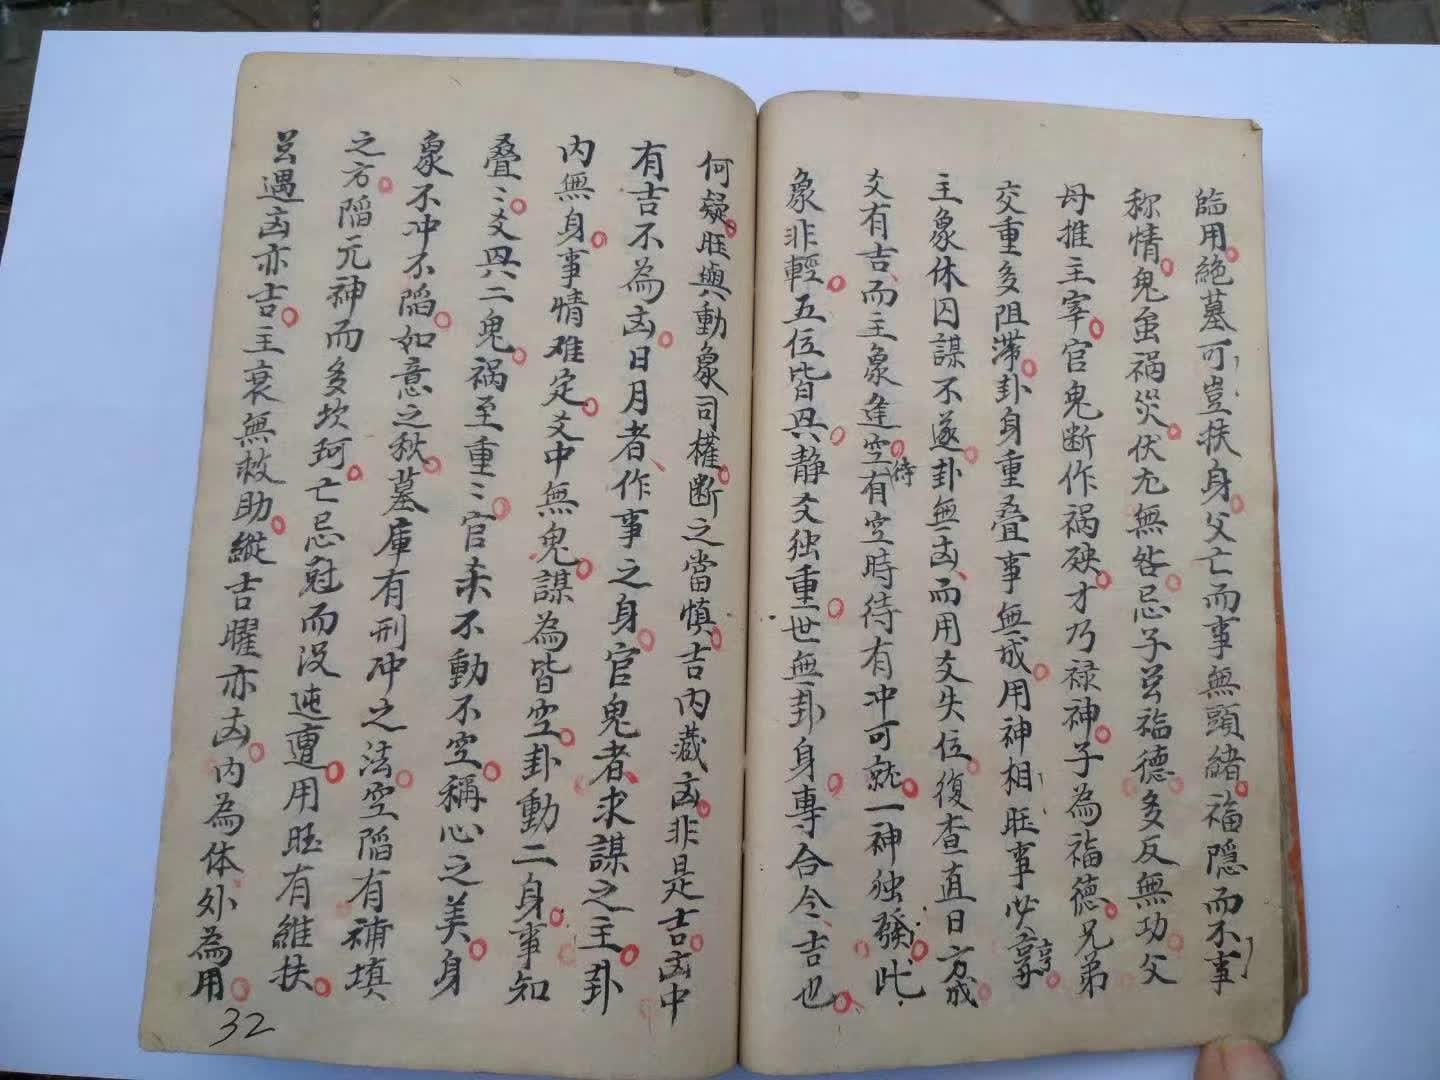 臨用絕墓可豈扶身父亡而事無頭緒福隱而不事
称情鬼虽祸災伏尤無咎忌子岩福德多反無功父
母推主宰官鬼断作祸殃才乃禄神子為福德兄弟
交重多阻滞卦身重叠事無成用神相旺事必亨
主象休囚謀不遂卦無凶而用爻失位復查直日方成
爻有吉而主象逢空待有空時待有冲可就一神独發此
象非輕五位皆興静爻独重世無卦身專合令吉也
何疑旺與動象司權断之當慎吉内藏凶非是吉凶中
有吉不為凶日月者作事之身官鬼者求謀之主卦
内無身事情难定爻中無鬼謀為皆空卦動二身事知
叠〻爻興二鬼祸至重〻官未不動不空稱心之美身
象不冲不陷如意之秋墓庫有刑冲之法空陷有補填
之方陷元神而多坎坷亡忌尅而没迍邅用旺有維扶
岩遇凶亦吉主衰無救助縱吉曜亦凶内為体外為用
32